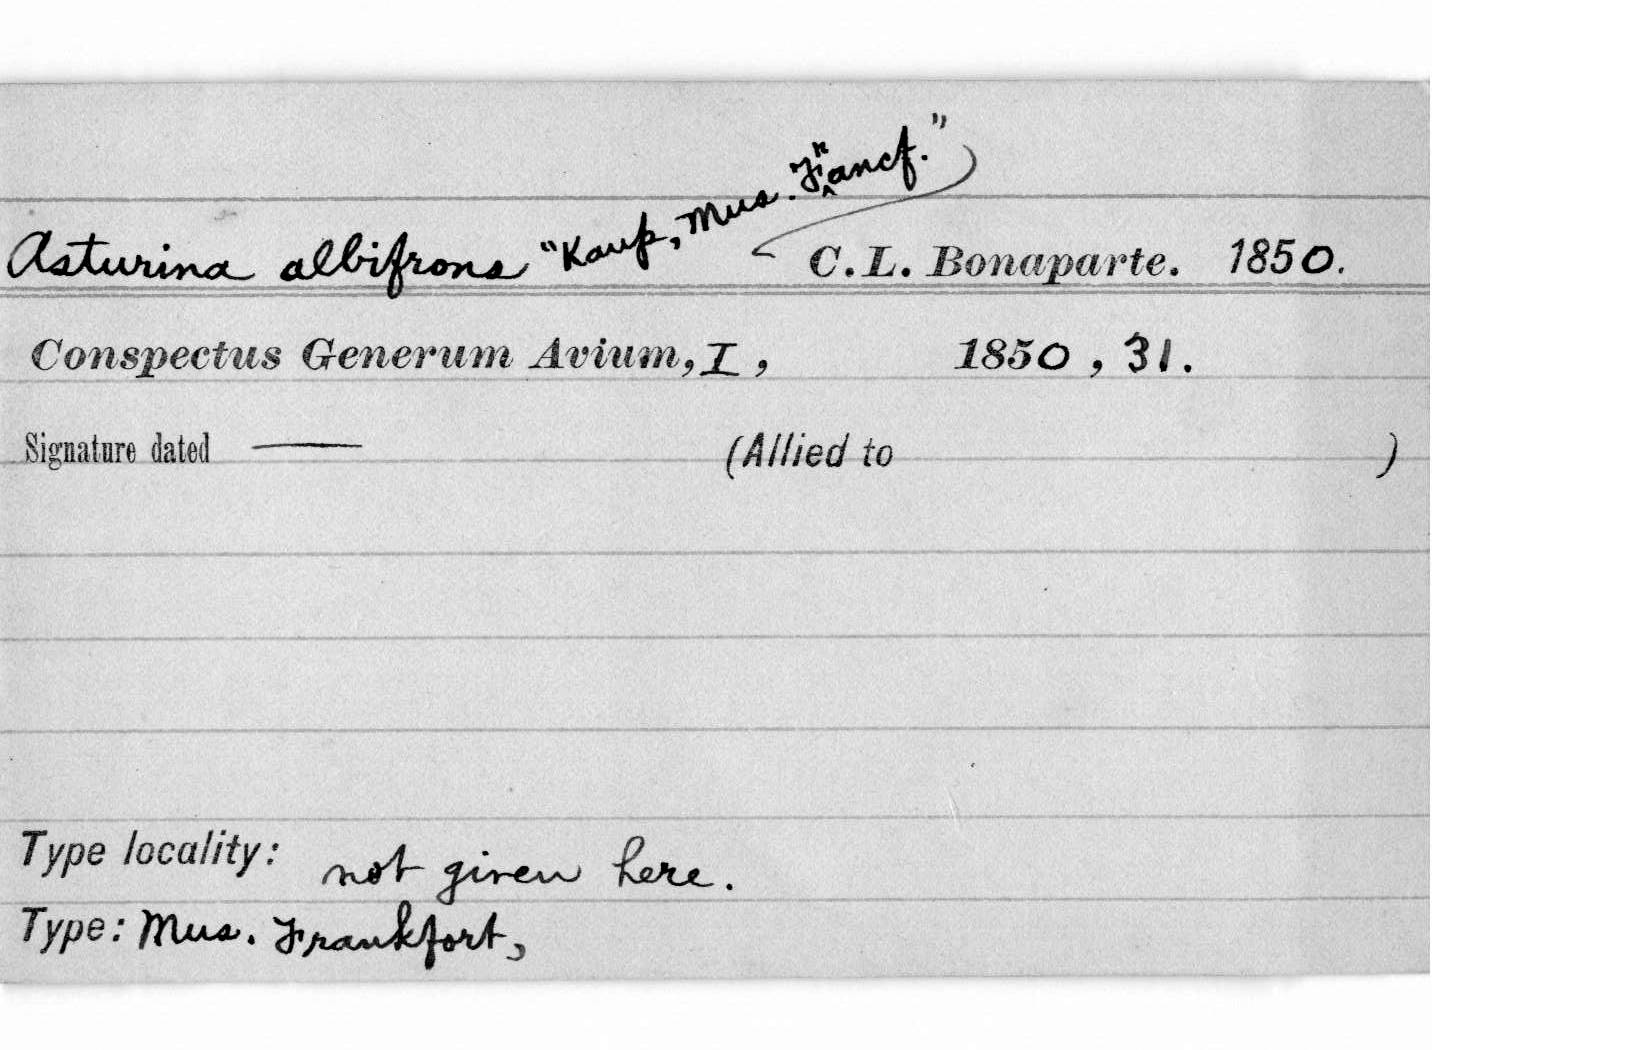 Asturina albifrons "Kaup, Mus. Francf." C.L. Bonaparte. 1850.
Conspectus Generum Avium, I, 1850, 31.
Signature dated — (Allied to )
Type locality: not given here.
Type: Mus. Frankfort,